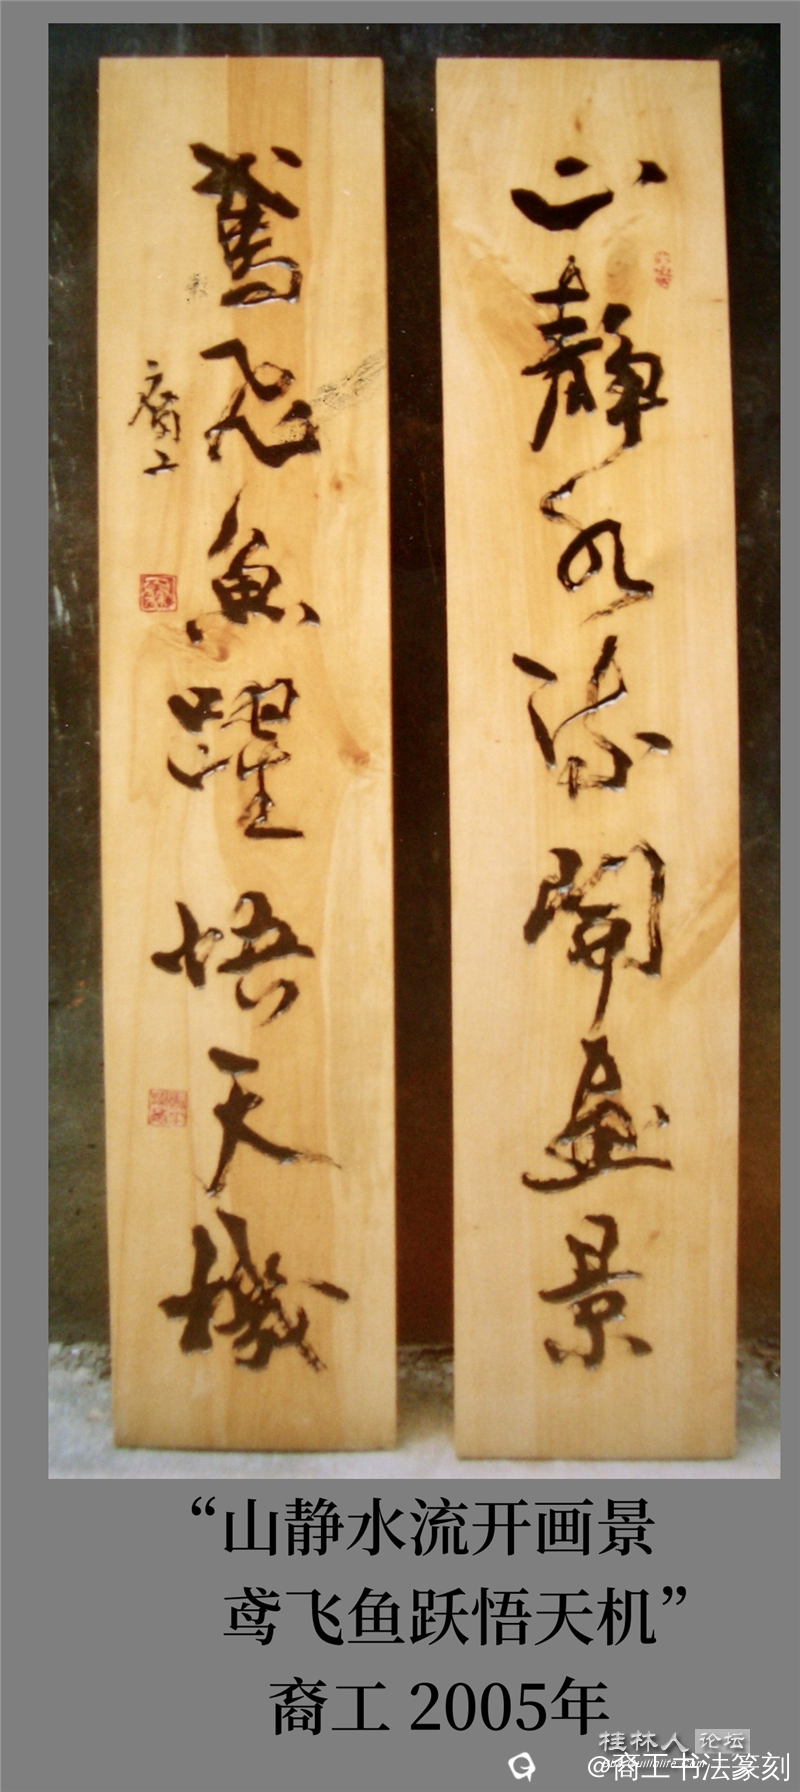 山靜水流開畫景
鳶飛魚躍悟天機
裔工
“山静水流开画景
鸢飞鱼跃悟天机”
裔工 2005年
桂林人论坛
@裔工书法篆刻